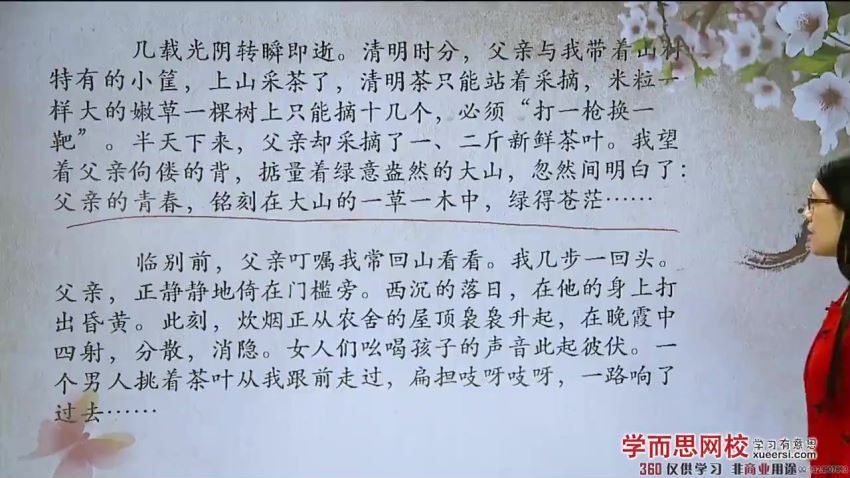 几载光阴转瞬即逝。清明时分，父亲与我带着山村
特有的小筐，上山采茶了，清明茶只能站着采摘，米粒一
样大的嫩草一棵树上只能摘十几个，必须“打一枪换一
靶”。半天下来，父亲却采摘了一、二斤新鲜茶叶。我望
着父亲佝偻的背，掂量着绿意盎然的大山，忽然间明白了：
父亲的青春，铭刻在大山的一草一木中，绿得苍茫……
临别前，父亲叮嘱我常回山看看。我几步一回头。
父亲，正静静地倚在门槛旁。西沉的落日，在他的身上打
出昏黄。此刻，炊烟正从农舍的屋顶袅袅升起，在晚霞中
四射，分散，消隐。女人们吆喝孩子的声音此起彼伏。一
个男人挑着茶叶从我跟前走过，扁担吱呀吱呀，一路响了
过去……
学而思网校 学习有意思
xueersi.com
360 仅供学习 非商业用途